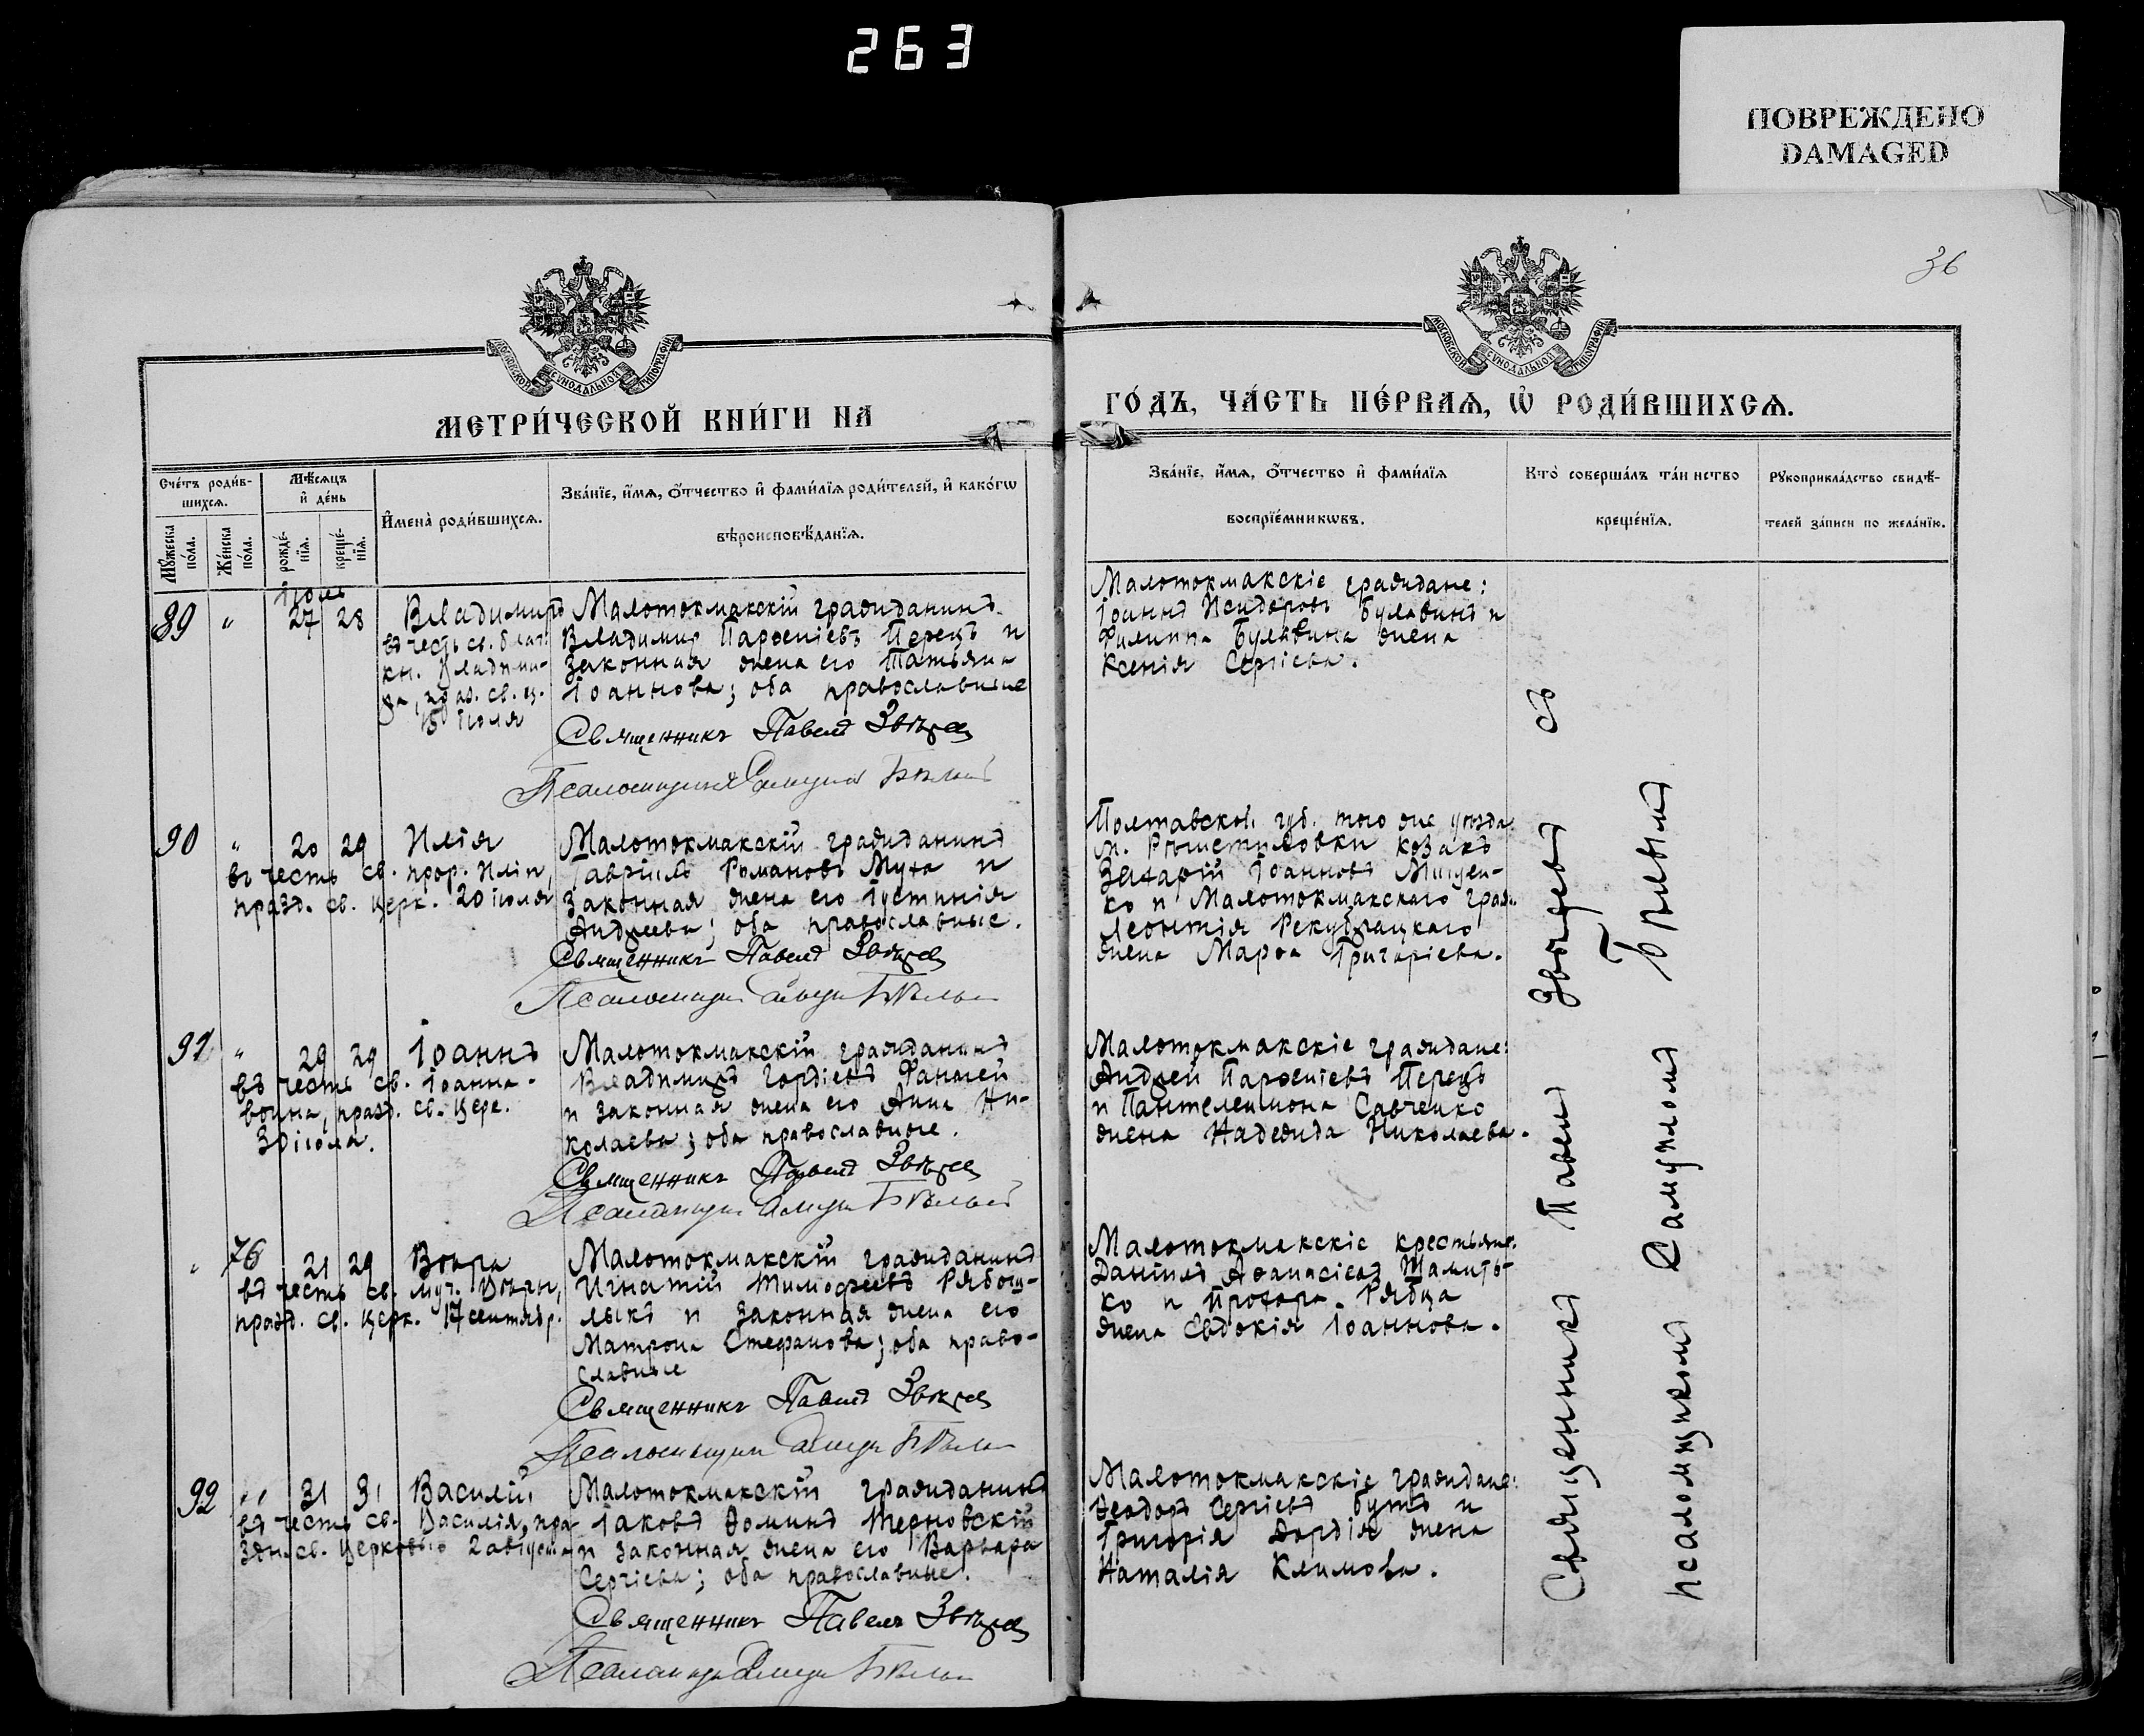 263
ПОВРЕЖДЕНО
DAMAGED
36
МОСКОВСКОЙ СѴНОДАЛЬНОЙ ТИПОГРАФІИ
МОСКОВСКОЙ СѴНОДАЛЬНОЙ ТИПОГРАФІИ
МЕТРИ́ЧЕСКОЙ КНИ́ГИ НА
ГО́ДЪ, ЧА́СТЬ ПЕ́РВАѦ, Ѡ҆ РОДИ́ВШИХСѦ.
Сче́тъ роди́в-
шихсѧ.
Мꙋ́жеска по́ла.
Же́нска по́ла.
Мѣ́сѧцъ
и҆ де́нь
рожде́-нїѧ.
креще́-нїѧ.
И҆мена̀ роди́вшихсѧ.
Зва́нїе, и҆́мѧ, ѻ҆́тчество и҆ фами́лїѧ роди́телей, и҆ како́гѡ
вѣроисповѣ́данїѧ.
Зва́нїе, и҆́мѧ, ѻ҆́тчество и҆ фами́лїѧ
воспрїе́мникѡвъ.
Кто̀ соверша́лъ та́инство
креще́нїѧ.
Рꙋкоприкла́дство свидѣ́-
телей за́писи по жела́нїю.
Іюль
89 " 27 28 Владимиръ
въ честь св. благ.
кн. Владими-
ра, празд. св. ц.
15 іюля
Малотокмакскій гражданинъ
Владимир Парѳеніевъ Перецъ и
законная жена его Татьяна
Іоаннова; оба православные
Священникъ Павелъ Звѣрев
Псаломщикъ Самуил Бѣлый
Малотокмакскіе граждане:
Іоаннъ Исидоровъ Булавинъ и
Филиппа Булавина жена
Ксенія Сергіева.
90 " 20 29 Илія
въ честь св. прор. Иліи,
празд. св. церк. 20 іюля
Малотокмакскій гражданинъ
Гавріилъ Романовъ Муха и
законная жена его Іустинія
Андреева; оба православные.
Священникъ Павелъ Звѣрев
Псаломщик Самуил Бѣлый
Полтавской губ. того же уѣзда
козакъ
Захарій Іоанновъ Мищен-
ко и Малотокмакскаго граж.
Леонтія
жена Марѳа Григоріева.
91 " 29 29 Іоаннъ
въ честь св. Іоанна-
воина, празд. св. церк.
30 іюля.
Малотокмакскій гражданинъ
Владимиръ Гордіевъ
и законная жена его Анна Ни-
колаева; оба православные.
Священникъ Павелъ Звѣрев
Псаломщик Самуил Бѣлый
Малотокмакскіе граждане:
Андрей Парѳеніевъ Перецъ
и Пантелеимона Савченко
жена Надежда Николаева.
" 76 21 29 Вѣра
въ честь св. муч. Вѣры,
празд. св. церк. 17 сентябр.
Малотокмакскій гражданинъ
Игнатій Тимофеевъ Рябош-
лыкъ и законная жена его
Матрона Стефанова; оба право-
славные
Священникъ Павелъ Звѣрев
Псаломщик Самуил Бѣлый
Малотокмакскіе крестьяне:
Даніилъ Аѳанасіевъ
ко и Прохора Рябца
жена Евдокія Іоаннова.
92 " 31 31 Василій
въ честь св. Василія, пра-
здн. св. церковью 2 августа
Малотокмакскій гражданинъ
Іаковъ Ѳоминъ Терновскій
и законная жена его Варвара
Сергіева; оба православные.
Священникъ Павелъ Звѣрев
Псаломщик Самуил Бѣлый
Малотокмакскіе граждане:
Ѳеодоръ Сергіевъ Бутъ и
Григорія жена
Наталія Климова.
Священникъ Павелъ Звѣревъ съ
псаломщикомъ Самуиломъ Бѣлымъ